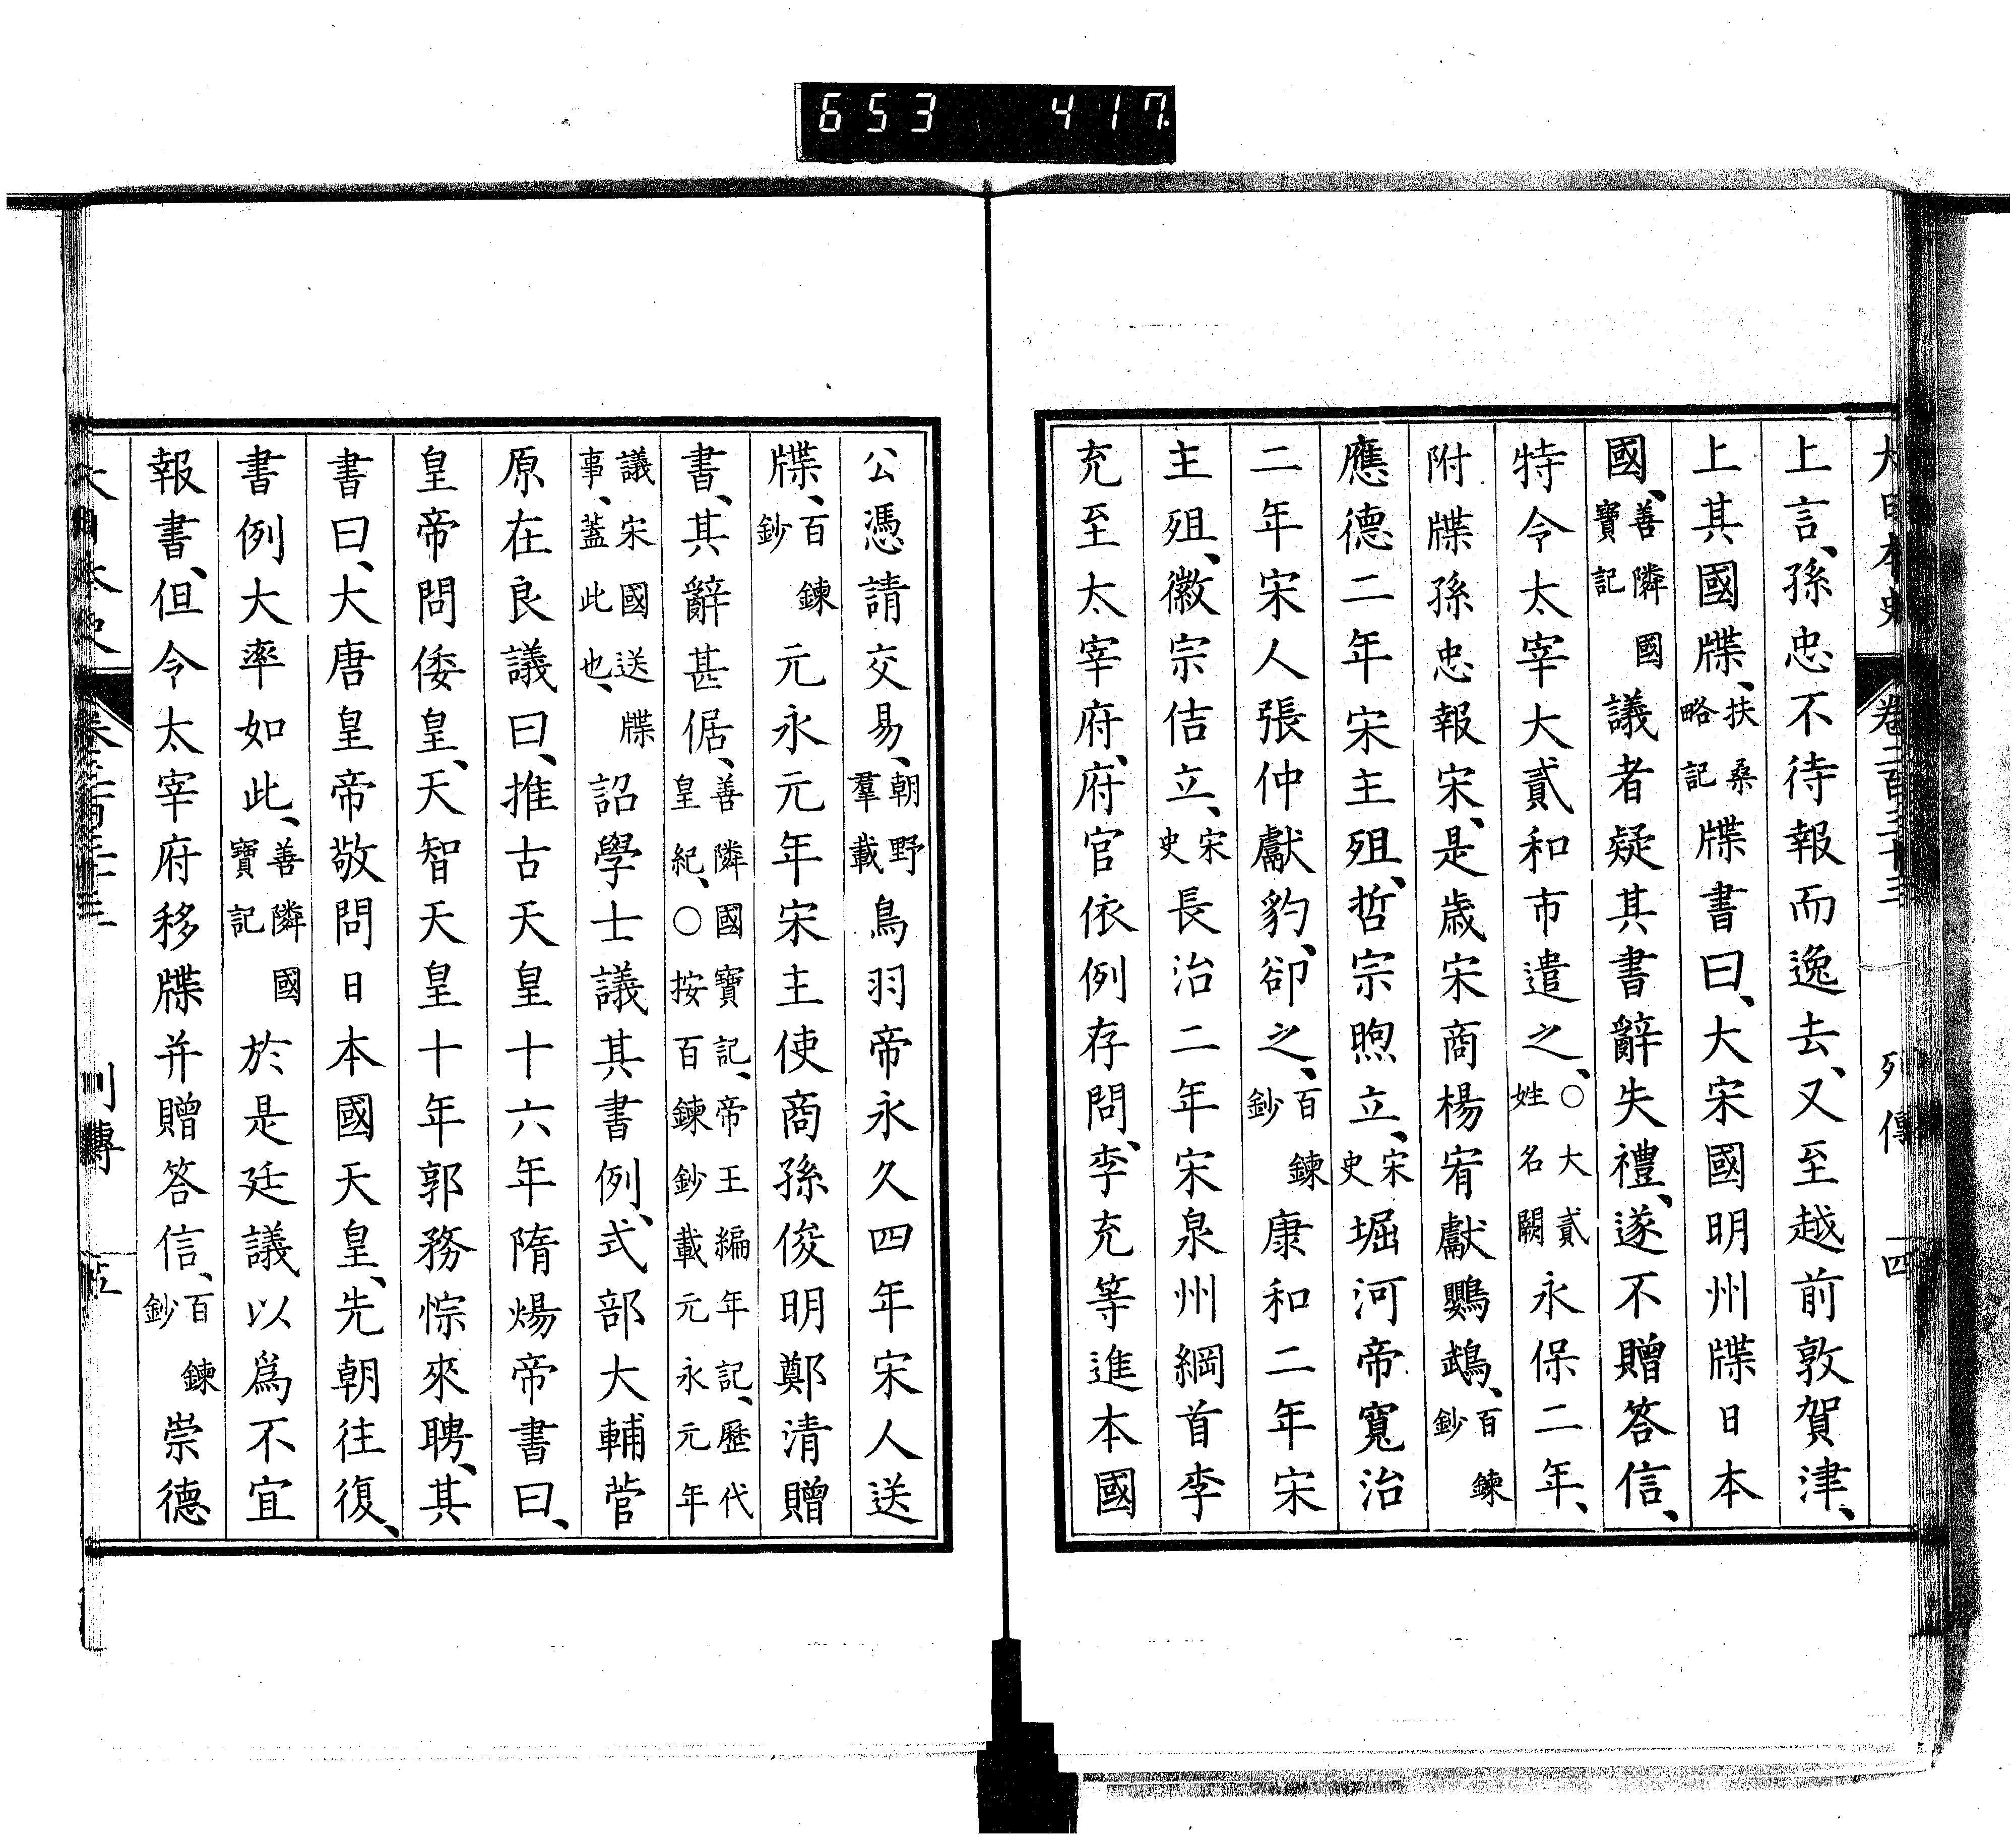 653 417
大日本史 卷二百四十三 列傳 四
上言、孫忠不待報而逸去、又至越前敦賀津、
上其國牒、扶桑略記牒書曰、大宋國明州牒日本
國、善隣國寶記議者疑其書辭失禮、遂不贈答信、
特令太宰大貳和市遣之、○大貳姓名闕永保二年、
附牒孫忠報宋、是歳宋商楊宥獻鸚鵡、百鍊鈔
應德二年宋主殂、哲宗煦立、宋史堀河帝寬治
二年宋人張仲獻豹、卻之、百鍊鈔康和二年宋
主殂、徽宗佶立、宋史長治二年宋泉州綱首李
充至太宰府、府官依例存問、李充等進本國
公憑請交易、朝野羣載鳥羽帝永久四年宋人送
牒、百鍊鈔元永元年宋主使商孫俊明鄭清贈
書、其辭甚倨、善隣國寶記、帝王編年記、歷代皇紀、○按百鍊鈔載元永元年
議宋國送牒事、蓋此也、詔學士議其書例、式部大輔菅
原在良議曰、推古天皇十六年隋煬帝書曰、
皇帝問倭皇、天智天皇十年郭務悰來聘、其
書曰、大唐皇帝敬問日本國天皇、先朝往復、
書例大率如此、善隣國寶記於是廷議以爲不宜
報書、但令太宰府移牒并贈答信、百鍊鈔崇德